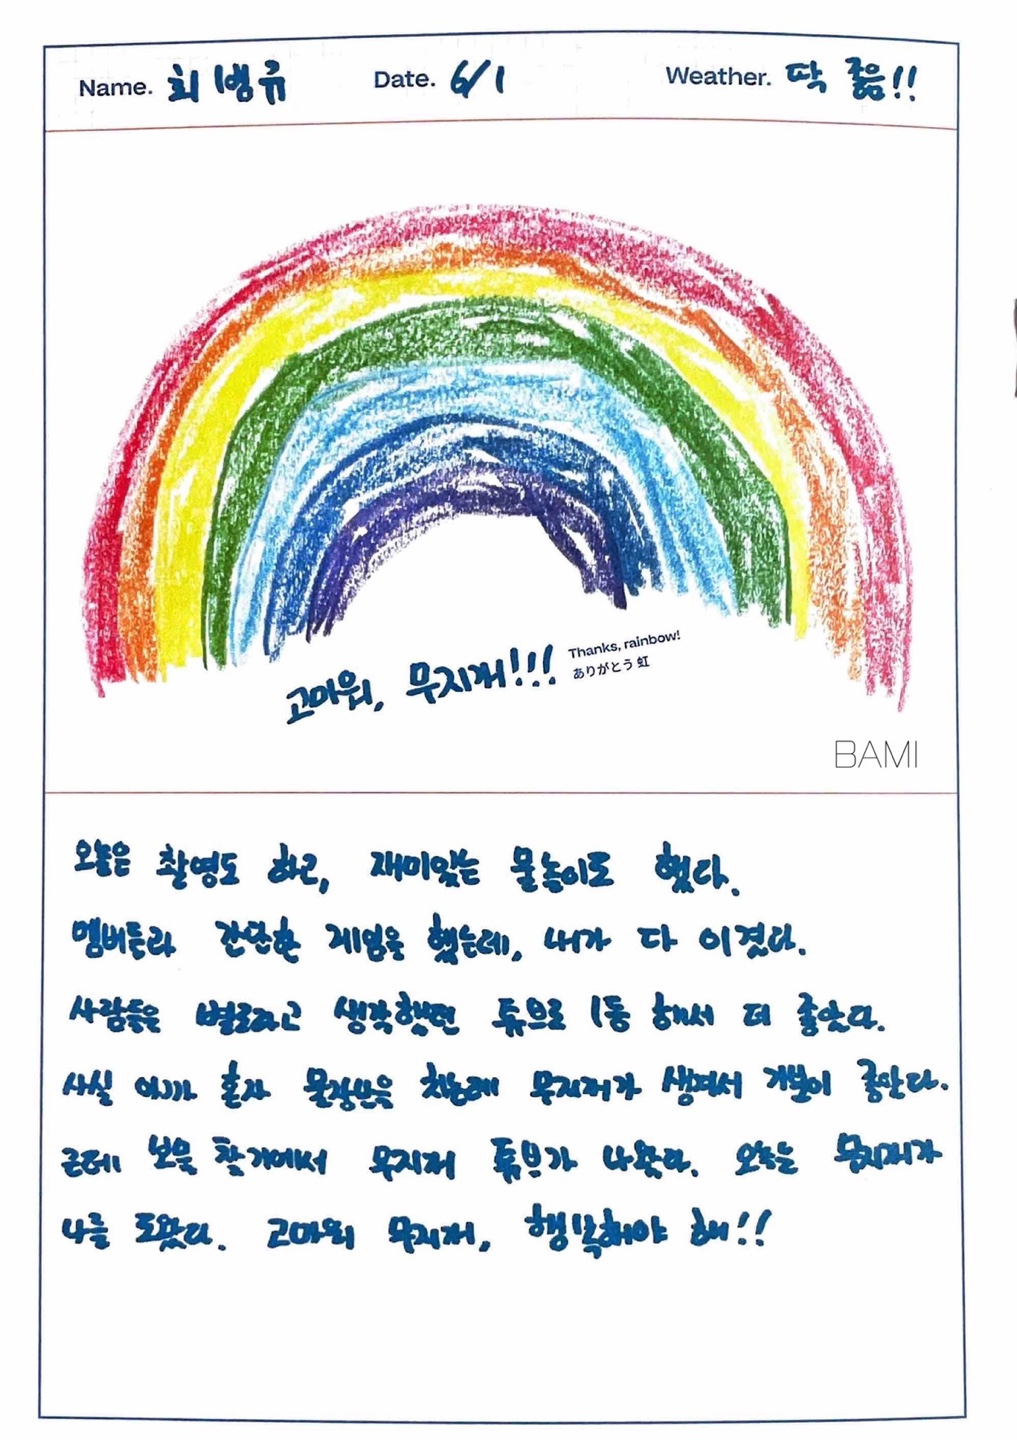 Name. 최병규 Date. 6/1 Weather. 딱 좋음!!
고마워, 무지개!!! Thanks, rainbow!
ありがとう 虹
BAMI
오늘은 촬영도 하고, 재미있는 물놀이도 했다.
멤버들과 간단한 게임을 했는데, 내가 다 이겼다.
사람들은 별로라고 생각했던 튜브로 1등 해서 더 좋았다.
사실 아까 혼자 물장난을 치는데 무지개가 생겨서 기분이 좋았다.
근데 보물 찾기에서 무지개 튜브가 나왔다. 오늘은 무지개가
나를 도왔다. 고마워 무지개, 행복해야 해!!